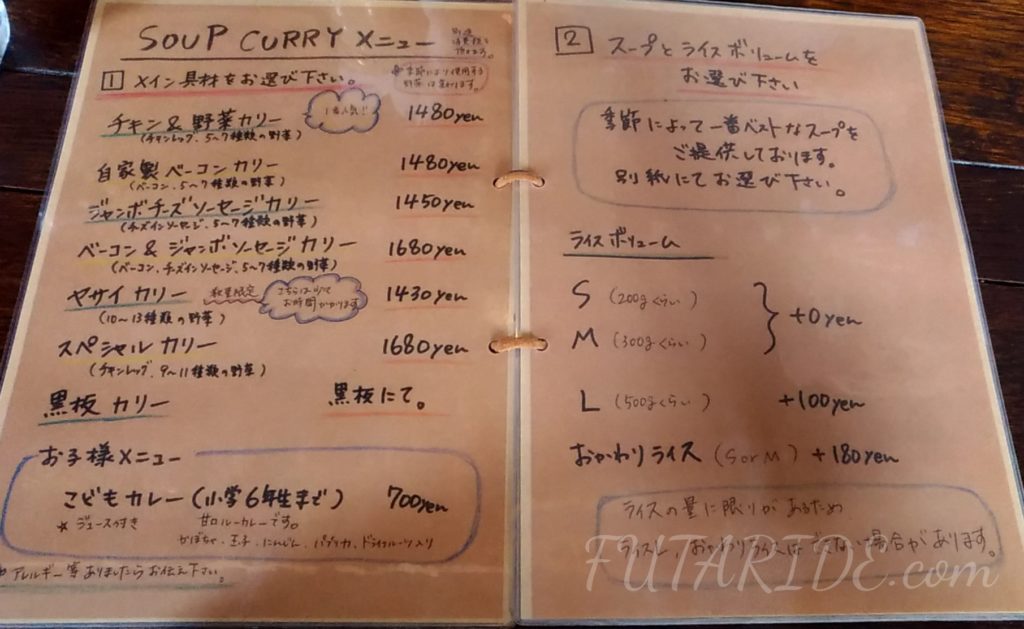 SOUP CURRY メニュー
別途
消費税を
頂きます。
1 メイン具材をお選び下さい。
季節により使用する
野菜は変わります。
1番人気!!
チキン & 野菜カリー 1480yen
(チキンレッグ、5〜7種類の野菜)
自家製ベーコンカリー 1480yen
(ベーコン、5〜7種類の野菜)
ジャンボチーズソーセージカリー 1450yen
(チーズインソーセージ、5〜7種類の野菜)
ベーコン & ジャンボソーセージカリー 1680yen
(ベーコン、チーズインソーセージ、5〜7種類の野菜)
ヤサイカリー 数量限定 1430yen
こちらは少々
お時間かかります
(10〜13種類の野菜)
スペシャルカリー 1680yen
(チキンレッグ、9〜11種類の野菜)
黒板カリー 黒板にて。
お子様メニュー
こどもカレー(小学6年生まで) 700yen
★ ジュースつき 甘口ルーカレーです。
かぼちゃ、玉子、にんじん、パプリカ、ドライフルーツ入り
アレルギー等ありましたらお伝え下さい。
2 スープとライスボリュームを
お選び下さい
季節によって一番ベストなスープを
ご提供しております。
別紙にてお選び下さい。
ライスボリューム
S (200gくらい)
+0yen
M (300gくらい)
L (500gくらい) +100yen
おかわりライス (SorM) +180yen
ライスの量に限りがあるため
ライスL、おかわりライスはできない場合があります。
FUTARIDE.com